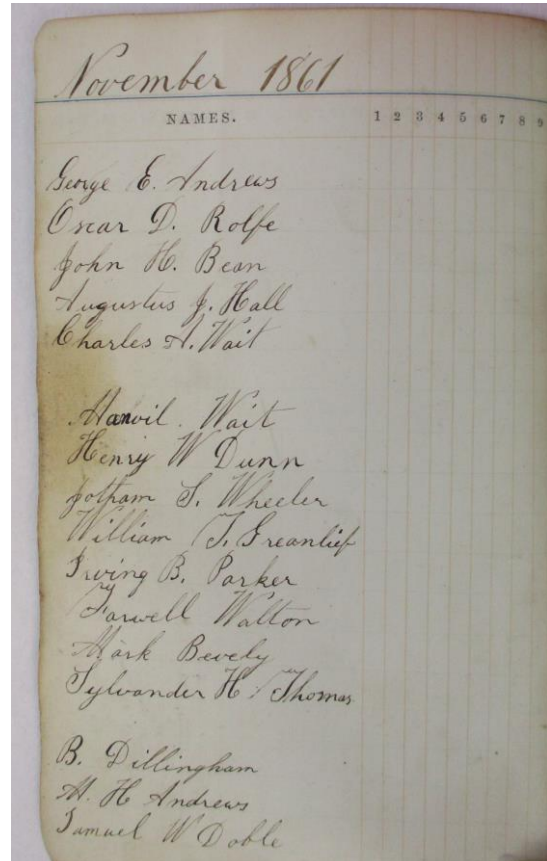 November 1861
NAMES. 1 2 3 4 5 6 7 8 9
George E. Andrews
Oscar D. Rolfe
John H. Bean
Augustus J. Hall
Charles A. Wait
Manvil Wait
Henry W Dunn
Jotham S. Wheeler
William T. Greanlief
Irving B. Parker
Farwell Walton
Mark Bevely
Sylvander H. Thomas
B. Dillingham
A. H Andrews
Samuel W Doble